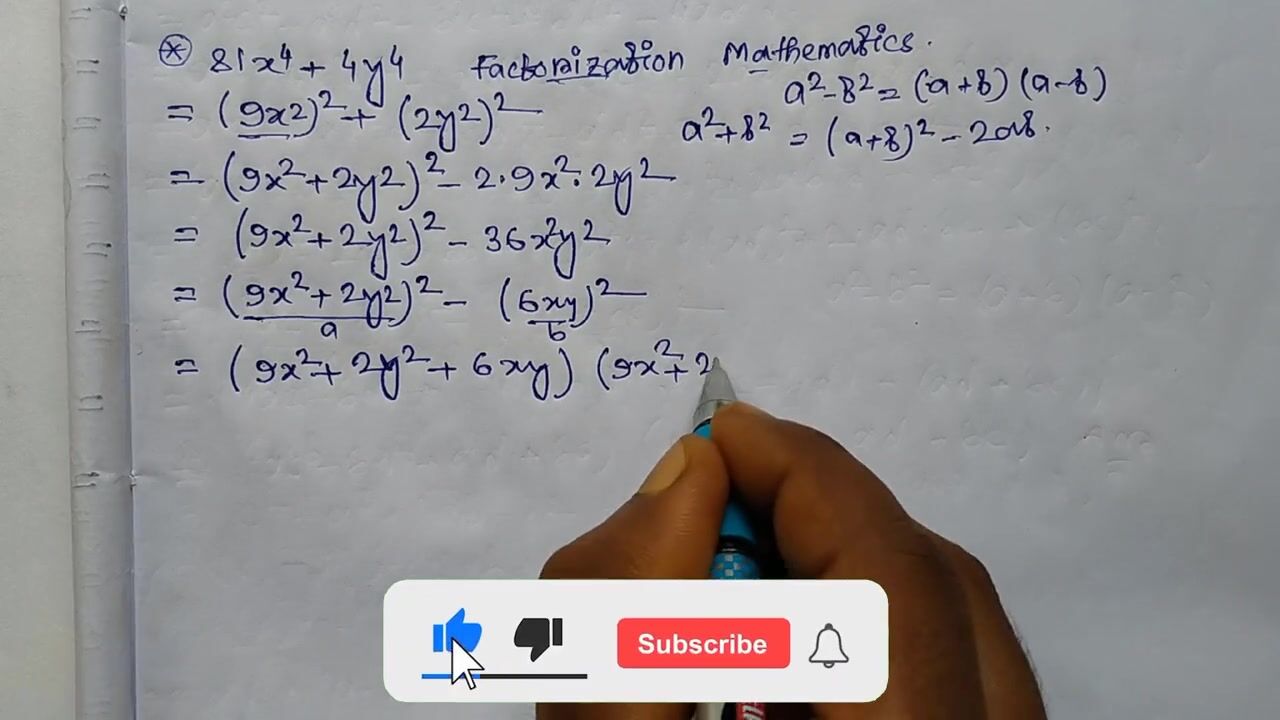 ⊛ 81x⁴ + 4y⁴ Factorization Mathematics.
= (9x²)² + (2y²)² a²-b² = (a+b)(a-b)
a²+b² = (a+b)² - 2ab.
= (9x²+2y²)² - 2·9x²·2y²
= (9x²+2y²)² - 36x²y²
= (9x²+2y²)² - (6xy)²
a b
= (9x²+2y²+6xy) (9x²+2
Subscribe